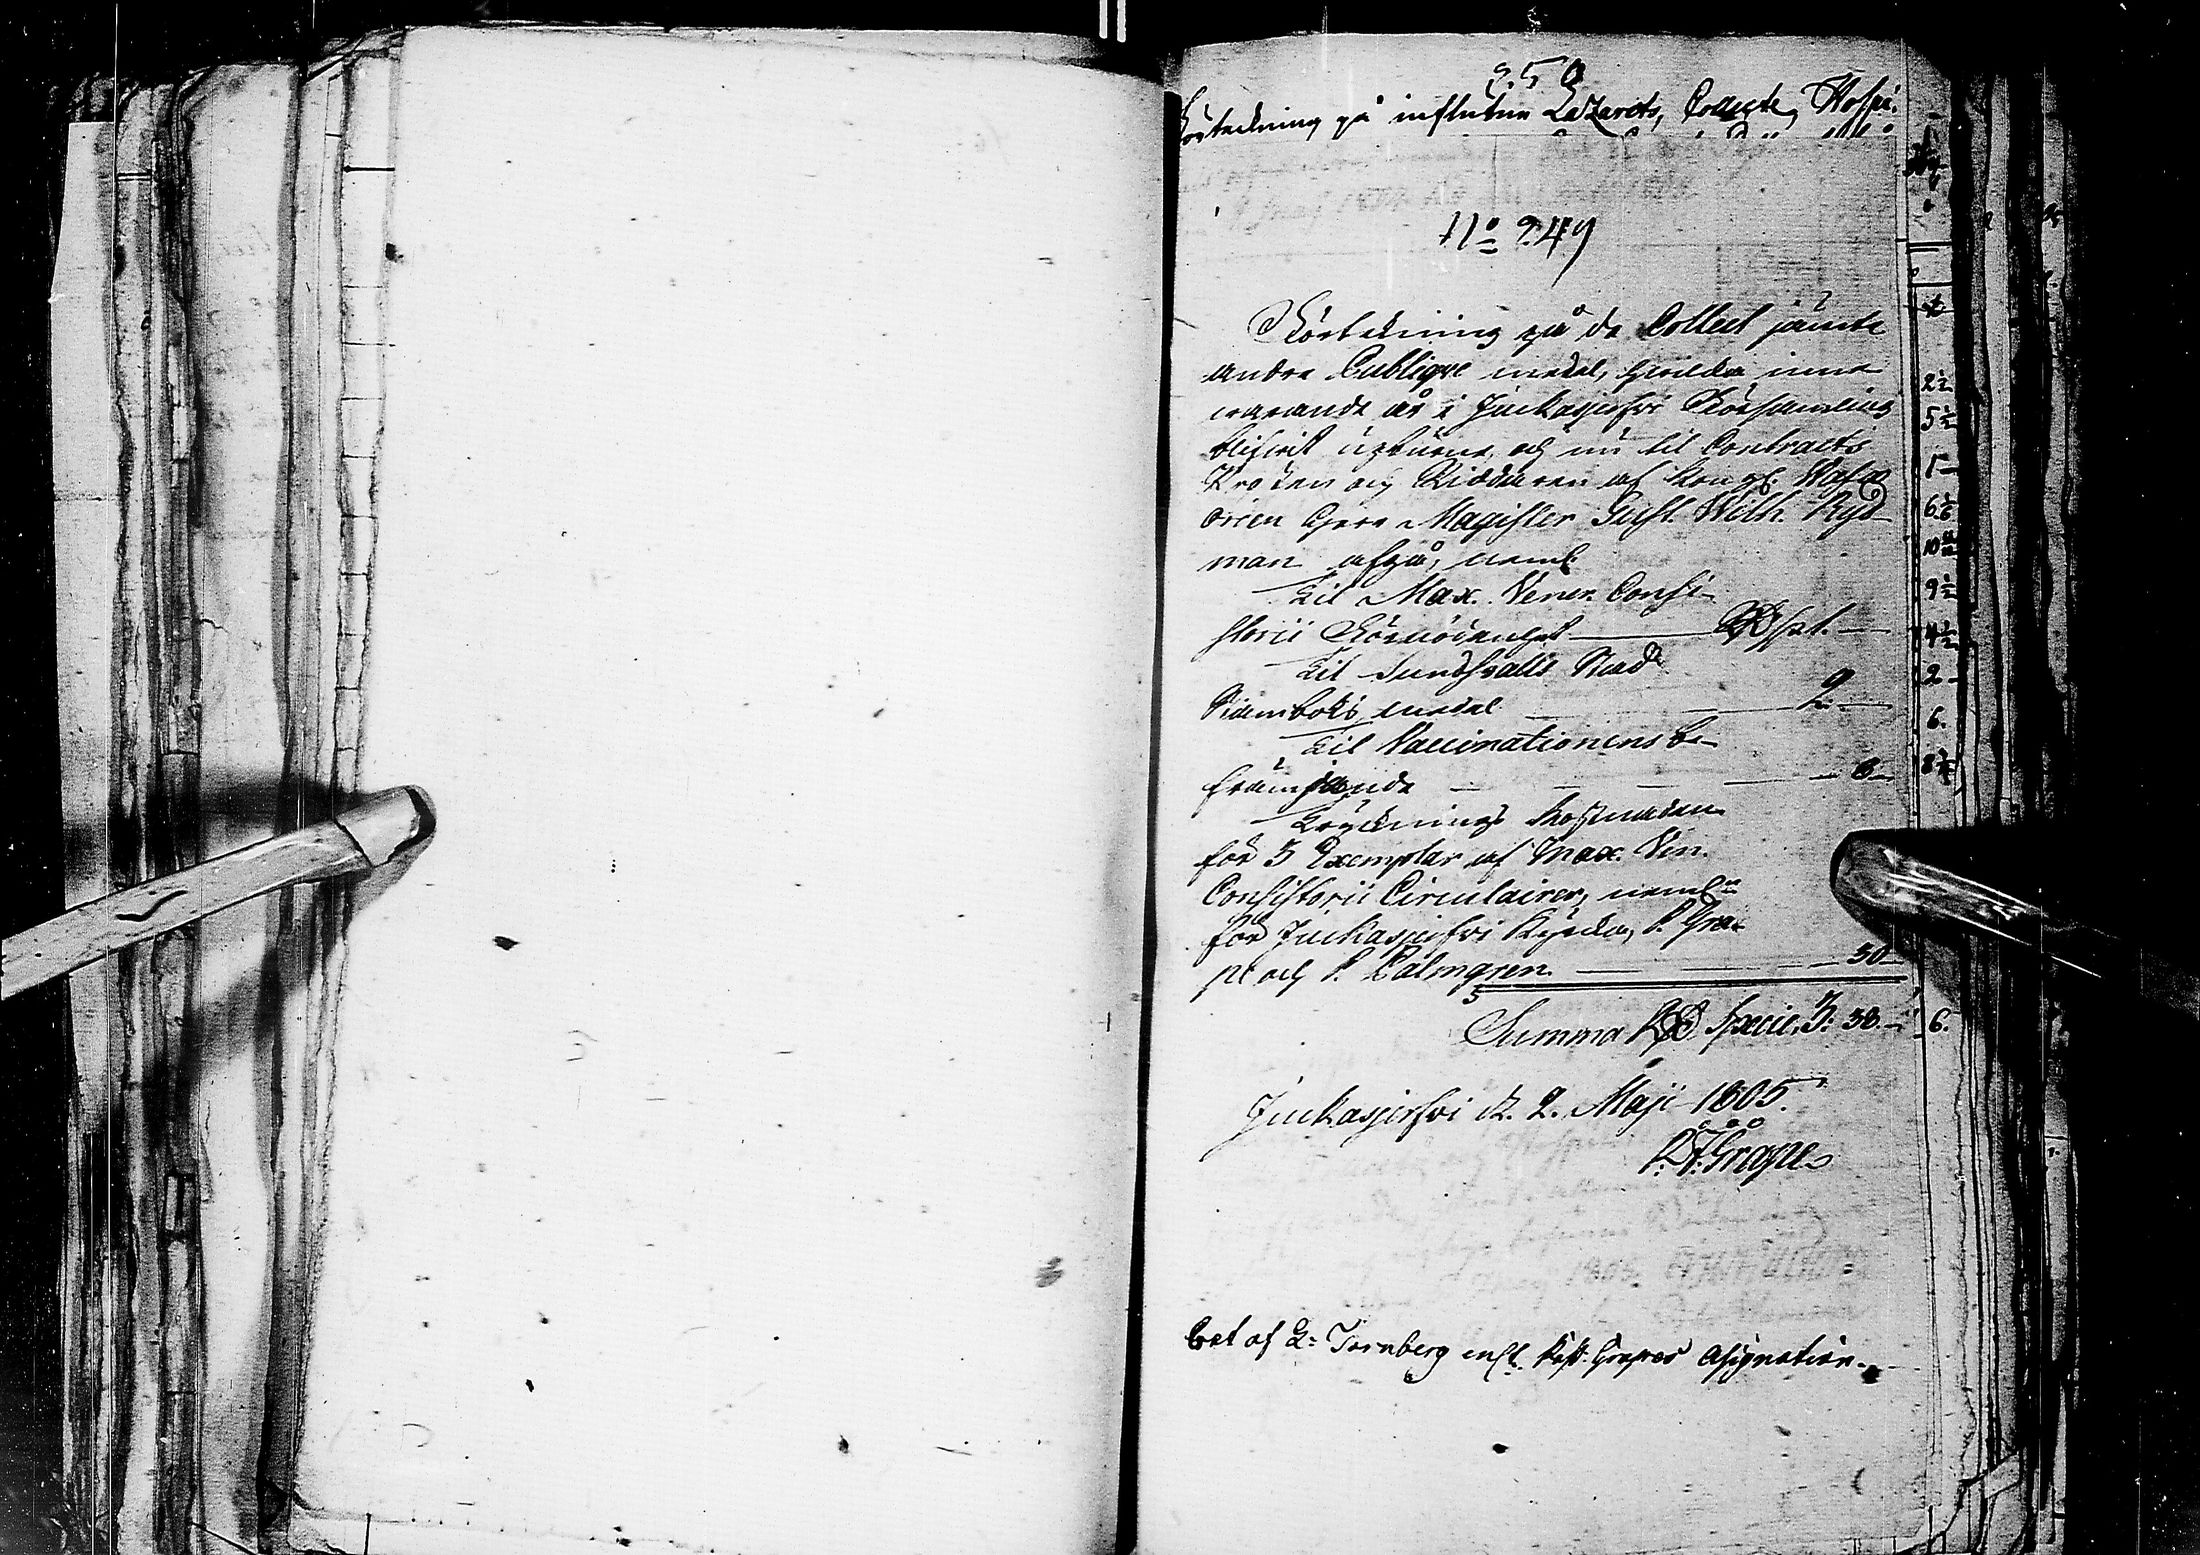 250
Förteckning på influtne Lazarets, Collecte, Hospi:
No 249
Förtekning på de Collect jämte
andra Publique medel, hvilka inne
warande år i Juckasjerfvi Församling
blifvit upburne, och nu til Contracts
Prosten och Riddaren af Kongl. Wasa
orden Herr Magister Gust. Wilh. Ryd-
man afgå, neml.
Til Max. Vener. Consi-
storii Förnödenhet RD sp 1.
Til Sundsvalls Stad
Stamboks medel 2.
Til Vaccinationens be-
främjande 6
Trycknings kostnaden
för 5 Exemplar af Max. Ven.
Consistorii Circulairer, nemln
för Juckasjerfvi Kyrcka, P. Gra-
pe och P. Palmgren 30
Summa RD Specie, 1: 38.
Juckasjerfvi d. 2. Maji 1805.
Grape
Bet af Tornberg enl. Past. Grapes Assignation.
2½
5½
9½
4½
2
6.
6.